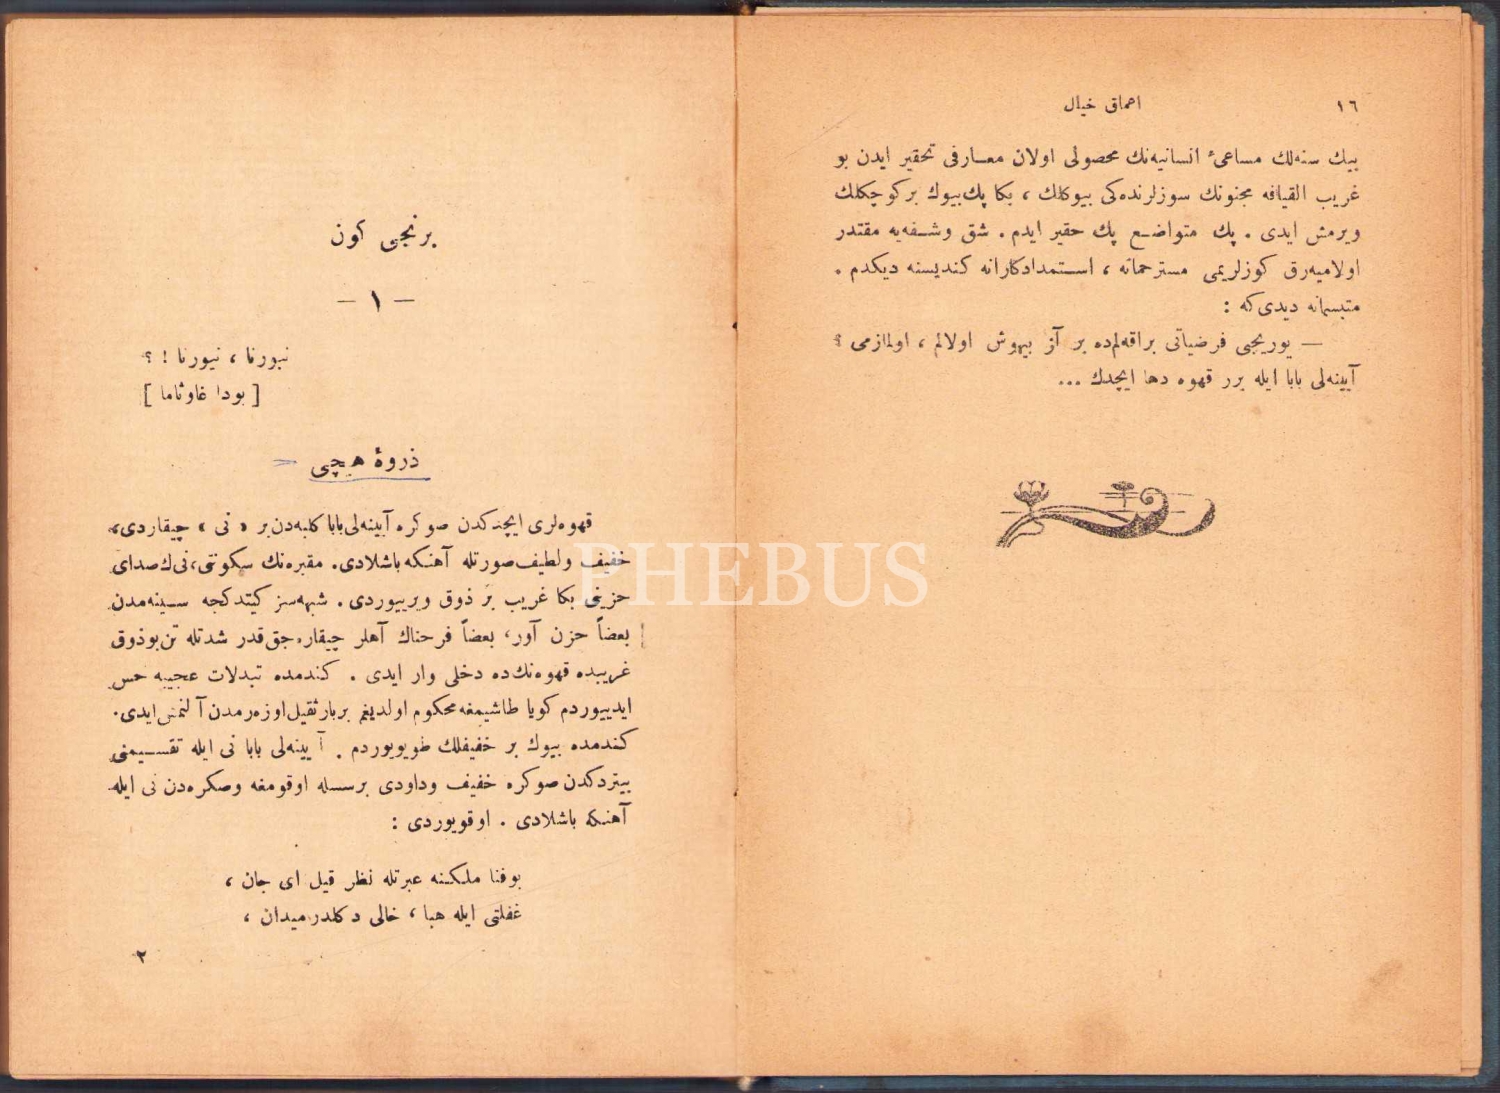 ١٦
اعماق خيال
بيك سنه‌لك مساعیٔ انسانيه‌نك محصولی اولان معارفی تحقير ايدن بو
غريب القيافه مجنونك سوزلرنده‌كی بيوكلك ، بكا پك بيوك بر كوچكلك
ويرمش ايدی . پك متواضع پك حقير ايدم . شق وشفه‌يه مقتدر
اولاميه‌رق كوزلريمی مسترحمانه ، استمدادكارانه كنديسنه ديكدم .
متبسمانه ديدی‌كه :
— يوريجی فرضياتی براقه‌لم‌ده بر آز بيهوش اولالم ، اولمازمی ؟
آيينه‌لی بابا ايله برر قهوه دها ايچدك ...
برنجی كون
— ١ —
نيورنا ، نيورنا ! ؟
[ بودا غاوثاما ]
ذروهٔ هيچی
قهوه‌لری ايچدكدن صوكره آيينه‌لی بابا كلبه‌دن بر « نی » چيقاردی،
خفيف ولطيف صورتله آهنكه باشلادی. مقبره‌نك سكوتی، نی‌ك صدای
حزينی بكا غريب بر ذوق ويرييوردی . شبهه‌سز كيتدكجه سينه‌مدن
بعضاً حزن آور، بعضاً فرحناك آهلر چيقاره‌جق قدر شدتله‌نن بو ذوق
غريبده قهوه‌نك‌ده دخلی وار ايدی . كندمده تبدلات عجيبه حس
ايدييوردم كويا طاشيمغه محكوم اولديغم بر بار ثقيل اوزه‌رمدن آلنمش ايدی.
كندمده بيوك بر خفيفلك طويويوردم . آيينه‌لی بابا نی ايله تقسيمنی
بيتردكدن صوكره خفيف وداودی بر سسله اوقومغه وصكره‌دن نی ايله
آهنكه باشلادی . اوقويوردی :
بو فنا ملكنه عبرتله نظر قيل ای جان ،
غفلتی ايله هبا ، خالی دكلدر ميدان ،
٢
PHEBUS